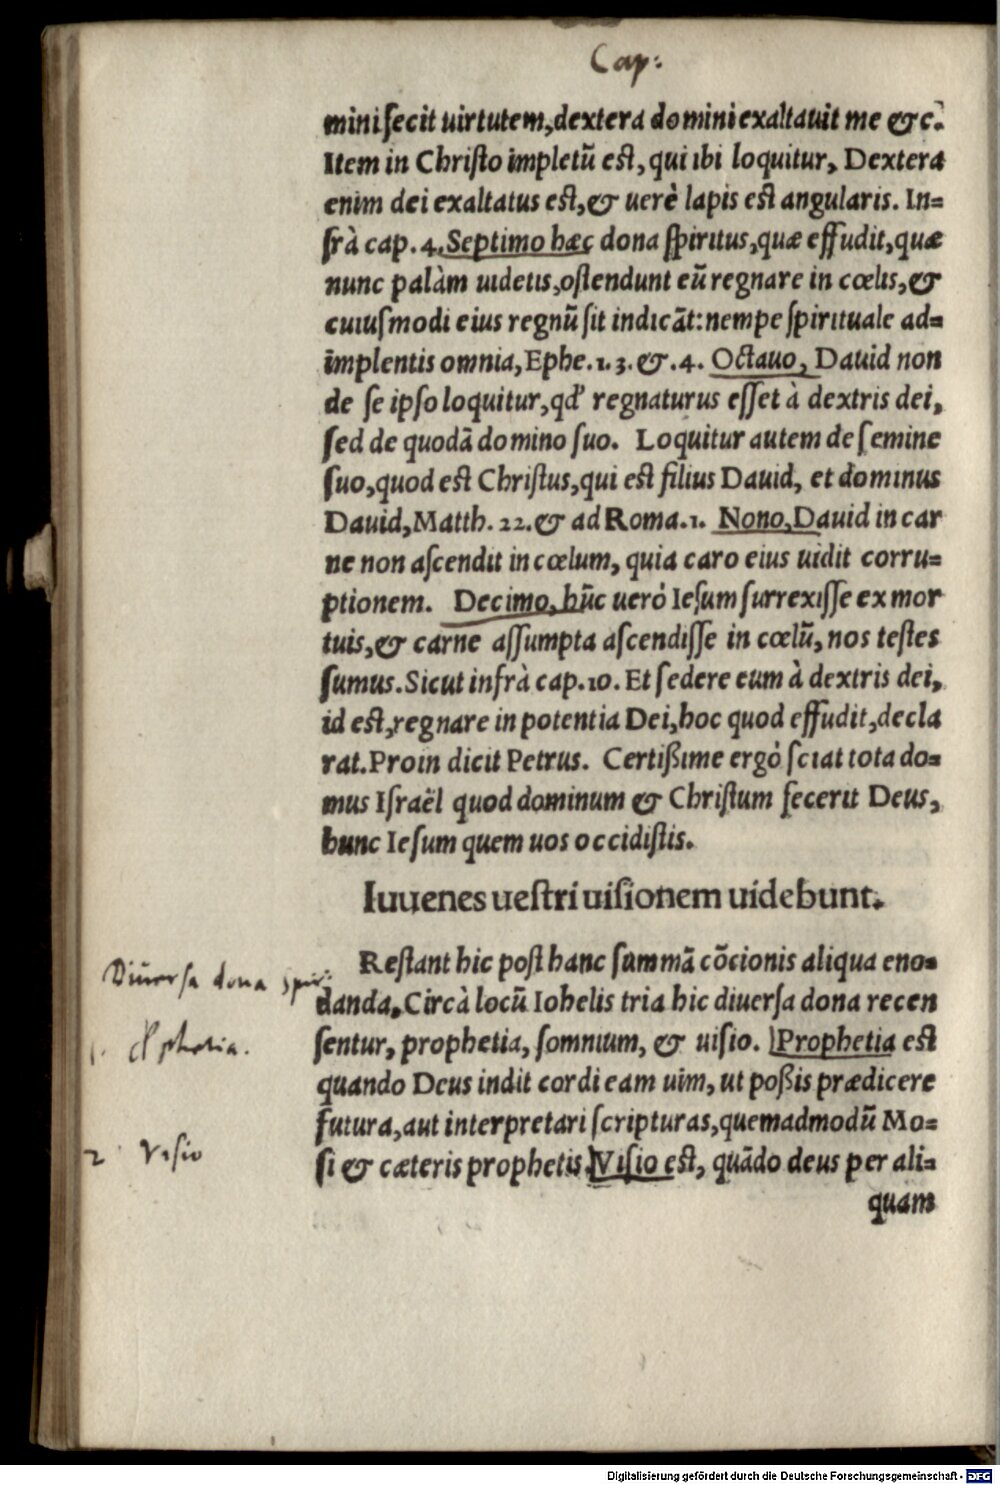 Cap:
mini fecit uirtutem, dextera domini exaltauit me &c.
Item in Christo impletũ est, qui ibi loquitur, Dextera
enim dei exaltatus est, & uerè lapis est angularis. In=
frà cap. 4. Septimo hæc dona spiritus, quæ effudit, quæ
nunc palàm uidetis, ostendunt eũ regnare in cœlis, &
cuiusmodi eius regnũ sit indicãt: nempe spirituale ad=
implentis omnia, Ephe. 1. 3. & .4. Octauo, Dauid non
de se ipso loquitur, qd' regnaturus esset à dextris dei,
sed de quodã domino suo. Loquitur autem de semine
suo, quod est Christus, qui est filius Dauid, et dominus
Dauid, Matth. 22. & ad Roma. 1. Nono, Dauid in car
ne non ascendit in cœlum, quia caro eius uidit corru=
ptionem. Decimo, hũc uerò Iesum surrexisse ex mor
tuis, & carne assumpta ascendisse in cœlũ, nos testes
sumus. Sicut infrà cap. 10. Et sedere eum à dextris dei,
id est, regnare in potentia Dei, hoc quod effudit, decla
rat. Proin dicit Petrus. Certißime ergò sciat tota do=
mus Israël quod dominum & Christum fecerit Deus,
hunc Iesum quem uos occidistis.
Iuuenes uestri uisionem uidebunt.
Restant hic post hanc summã cõcionis aliqua eno=
danda. Circà locũ Iohelis tria hic diuersa dona recen
sentur, prophetia, somnium, & uisio. Prophetia est
quando Deus indit cordi eam uim, ut poßis prædicere
futura, aut interpretari scripturas, quemadmodũ Mo=
si & cæteris prophetis. Visio est, quãdo deus per ali=
quam
Diuersa dona spir:
1. Pphetia.
2 Visio
Digitalisierung gefördert durch die Deutsche Forschungsgemeinschaft - DFG